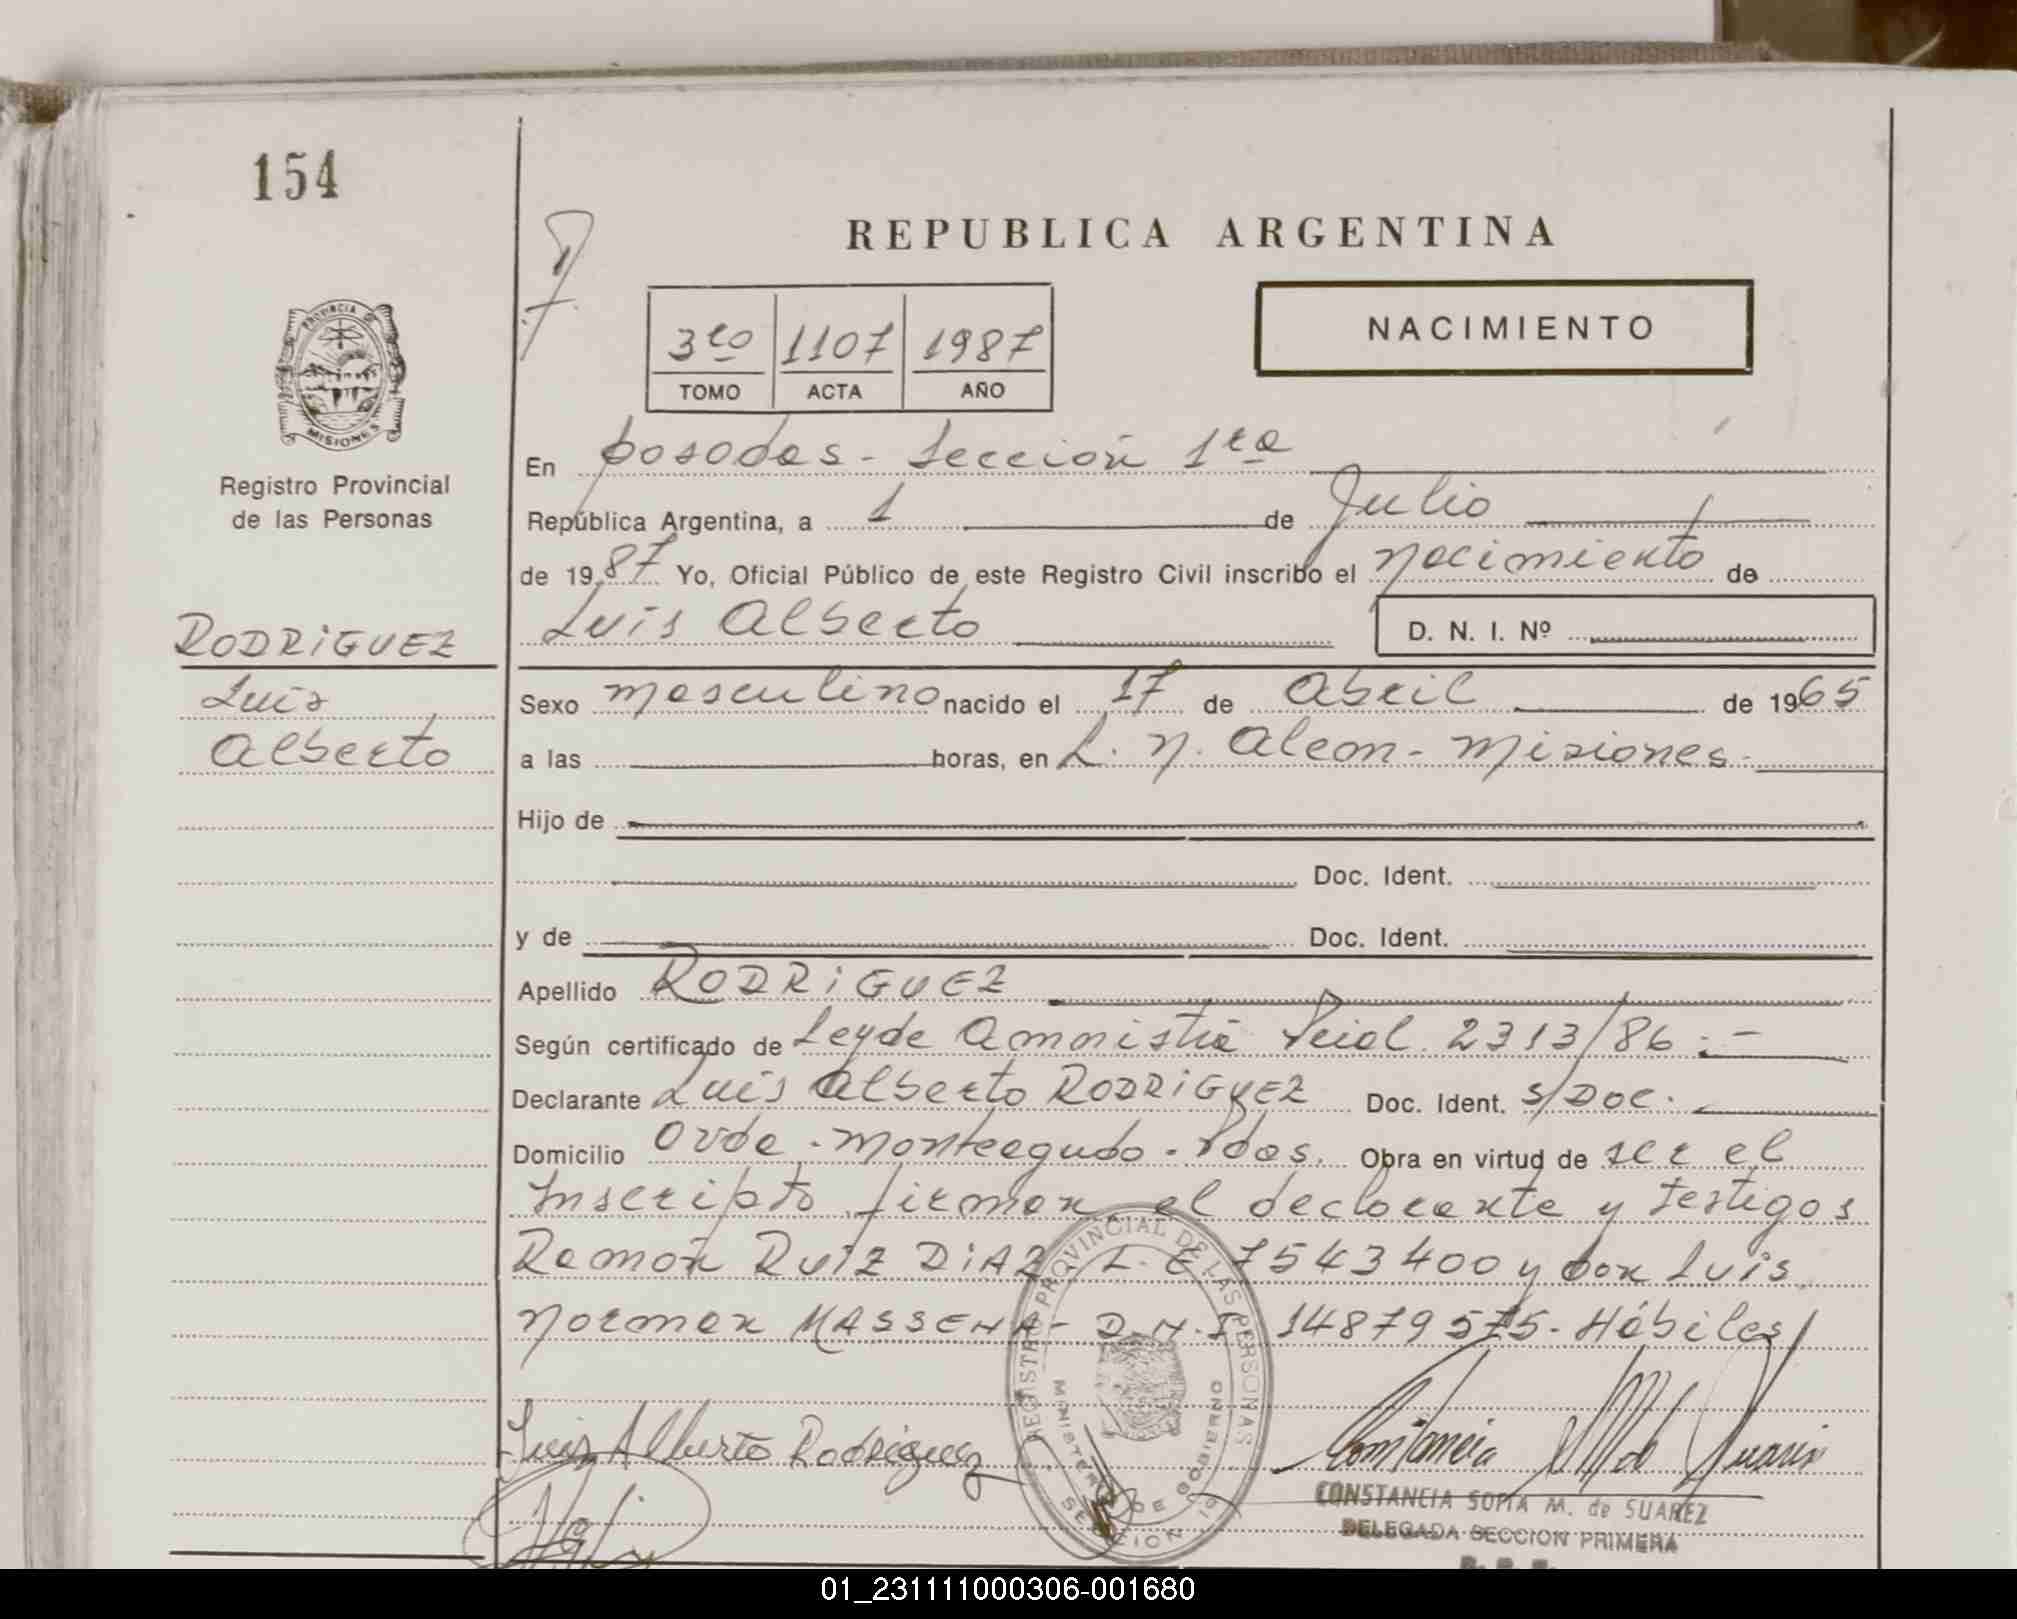 154
REPUBLICA ARGENTINA
NACIMIENTO
3ro 1107 1987
TOMO ACTA AÑO
PROVINCIA DE
MISIONES
Registro Provincial
de las Personas
En Posadas - Sección 1ra
República Argentina, a 1 de Julio
de 1987 Yo, Oficial Público de este Registro Civil inscribo el nacimiento de
Luis Alberto D. N. I. Nº
RODRIGUEZ
Luis
Alberto
Sexo masculino nacido el 17 de Abril de 1965
a las horas, en L. N. Alem - Misiones -
Hijo de
Doc. Ident.
y de Doc. Ident.
Apellido RODRIGUEZ
Según certificado de Ley de Amnistia 2313/86 . -
Declarante Luis Alberto RODRIGUEZ Doc. Ident. S/DOC.
Domicilio Avda - Monteagudo - Pdas. Obra en virtud de ser el
Inscripto firman el declarante y testigos
Ramón RUIZ DIAZ - L. E 7543400 y don Luis
Norman MASSENA - D.N.I 14879575 - Hábiles
Luis Alberto Rodriguez
REGISTRO PROVINCIAL DE LAS PERSONAS
MINISTERIO DE GOBIERNO
SECCION 1a
Constancia M de Suarez
CONSTANCIA SOFIA M. de SUAREZ
DELEGADA SECCION PRIMERA
01_231111000306-001680